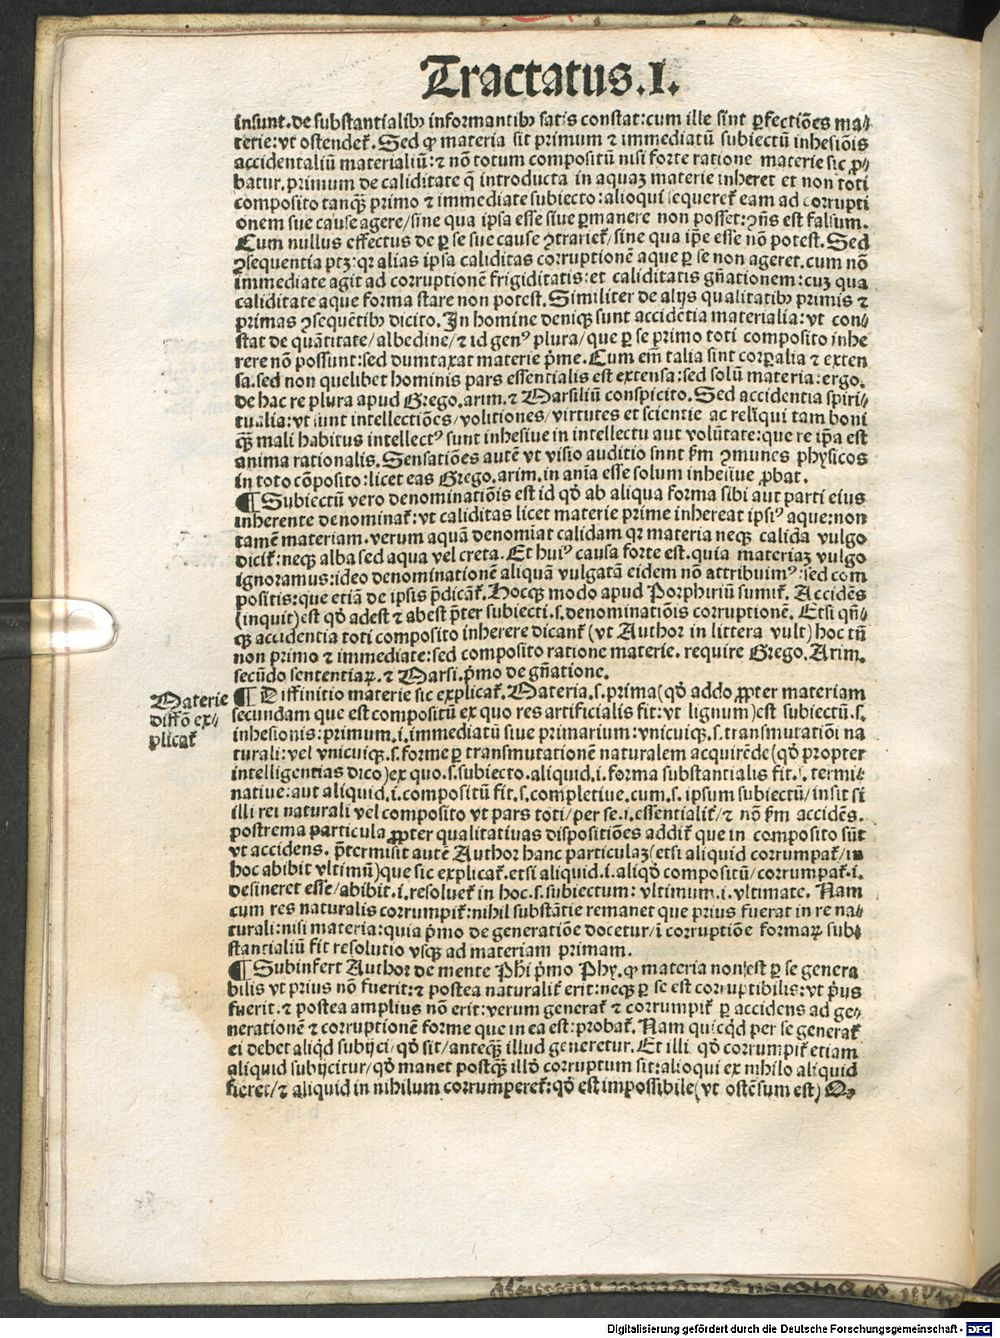 Tractatus.I.
insunt.de substantialibꝰ informantibꝰ satis constat:cum ille sint ꝑfectiões ma/
terie:vt ostendet᷑.Sed ꝙ materia sit primum ⁊ immediatũ subiectũ inhesiõis
accidentaliũ materialiũ:⁊ nõ totum compositũ nisi forte ratione materie sic ꝓ/
batur.primum de caliditate q̃ introducta in aquaꝫ materie inheret et non toti
composito tanqꝫ primo ⁊ immediate subiecto:alioqui sequeret᷑ eam ad corrupti
onem sue cause agere/sine qua ipsa esse siue ꝑmanere non posset:ꝯñs est falsum.
Cum nullus effectus de ꝑ se sue cause ꝯtrariet᷑/sine qua ip̃e esse nõ potest.Sed
ꝯsequentia ptꝫ:qꝛ alias ipsa caliditas corruptionẽ aque ꝑ se non ageret.cum nõ
immediate agit ad corruptionẽ frigiditatis:et caliditatis gñationem:cuꝫ qua
caliditate aque forma stare non potest.Similiter de alijs qualitatibꝰ primis ⁊
primas ꝯsequẽtibꝰ dicito.In homine deniqꝫ sunt accidẽtia materialia:vt con/
stat de quãtitate/albedine/⁊ id genꝰ plura/que ꝑ se primo toti composito inhe
rere nõ possunt:sed dumtaxat materie p̃me.Cum em̃ talia sint corꝑalia ⁊ exten
sa.sed non quelibet hominis pars essentialis est extensa:sed solũ materia:ergo.
de hac re plura apud Grego.arim.⁊ Marsiliũ conspicito.Sed accidentia spiri/
tualia:vt sunt intellectiões/volitiones/virtutes et scientie ac reliqui tam boni
qꝫ mali habitus intellectꝰ sunt inhesiue in intellectu aut volũtate:que re ip̃a est
anima rationalis.Sensatiões autẽ vt visio auditio snnt ẜm ꝯmunes physicos
in toto cõposito:licet eas Grego.arim.in ani̾a esse solum inhesiue ꝓbat.
¶Subiectũ vero denominatiõis est id qð ab aliqua forma sibi aut parti eius
inherente denominat᷑:vt caliditas licet materie prime inhereat ipsiꝰ aque:non
tamẽ materiam.verum aquã denomiat calidam qꝛ materia neqꝫ calida vulgo
dicit᷑:neqꝫ alba sed aqua vel creta.Et huiꝰ causa forte est.quia materiaꝫ vulgo
ignoramus:ideo denominationẽ aliquã vulgatã eidem nõ attribuimꝰ:sed com
positis:que etiã de ipsis p̃dicãt᷑.Hocqꝫ modo apud Porphiriũ sumit᷑.Accidẽs
(inquit)est qð adest ⁊ abest p̃ter subiecti.s.denominatiõis corruptionẽ.Etsi qñ/
qꝫ accidentia toti composito inherere dicant᷑(vt Author in littera vult)hoc tñ
non primo ⁊ immediate:sed composito ratione materie.require Grego.Arim.
secũdo sententiaꝝ.⁊ Marsi.p̃mo de gñatione.
Materie
diffõ ex/
plicat᷑
¶Diffinitio materie sic explicat᷑.Materia.s.prima(qð addo ꝓpter materiam
secundam que est compositũ ex quo res artificialis fit:vt lignum)est subiectũ.s.
inhesionis:primum.i.immediatũ siue primarium:vnicuiqꝫ.s.transmutatiõi na
turali:vel vnicuiqꝫ.s.forme ꝑ transmutationẽ naturalem acquirẽde(qð propter
intelligentias dico)ex quo.s.subiecto.aliquid.i.forma substantialis fit.s.termi/
natiue:aut aliquid.i.compositũ fit.s.completiue.cum.s.ipsum subiectũ/insit si
illi rei naturali vel composito vt pars toti/per se.i.essentialit᷑/⁊ nõ ẜm accidẽs.
postrema particula ꝓpter qualitatiuas dispositiões addit᷑ que in composito sũt
vt accidens.p̃termisit autẽ Author hanc particulaꝫ(etsi aliquid corrumpat᷑/in
hoc abibit vltimũ)que sic explicat᷑.etsi aliquid.i.aliqð compositũ/corrumpat᷑.i.
desineret esse/abibit.i.resoluet᷑ in hoc.s.subiectum:vltimum.i.vltimate.Nam
cum res naturalis corrumpit᷑:nihil substãtie remanet que prius fuerat in re na/
turali:nisi materia:quia p̃mo de generatiõe docetur/ĩ corruptiõe formaꝝ sub/
stantialiũ fit resolutio vsqꝫ ad materiam primam.
¶Subinfert Author de mente Phi̾ p̃mo Phy.ꝙ materia non est ꝑ se genera
bilis vt prius nõ fuerit:⁊ postea naturalit᷑ erit:neqꝫ ꝑ se est corruptibilis:vt p̃us
fuerit.⁊ postea amplius nõ erit:verum generat᷑ ⁊ corrumpit᷑ ꝑ accidens ad ge/
nerationẽ ⁊ corruptionẽ forme que in ea est:probat᷑.Nam quicqd̾ per se generat᷑
ei debet aliqd̾ subijci/qð sit/anteqꝫ illud generetur.Et illi qð corrumpit᷑ etiam
aliquid subijcitur/qð manet postqꝫ illð corruptum sit:alioqui ex nihilo aliquid
fieret/⁊ aliquid in nihilum corrumperet᷑:qð est impossibile(vt ostẽsum est)Q-
Digitalisierung gefördert durch die Deutsche Forschungsgemeinschaft - DFG